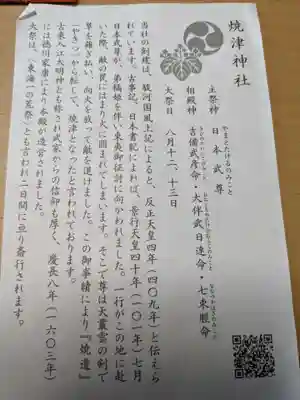 焼津神社
主祭神　日本武尊
やまとたけるのみこと
相殿神　吉備武彦命・大伴武日連命・七束脛命
大祭日　八月十二、十三日
当社の創建は、駿河国風土記によると、反正天皇四年（四〇九年）と伝えら
れています。古事記、日本書紀によれば、景行天皇四十年（一〇一年）七月
日本武尊が、弟橘姫を伴い東夷御征討に向かわれました。一行がこの地に赴
いた際、敵の罠にはまり火に囲まれてしまいます。そこで尊は天叢雲の剣で
草を薙ぎ払い、向火を放って敵を退けました。この御事績により『焼遺』
（やきつ）から転じて、焼津となったと言われております。
古来入江大明神とも称され武家からの信仰も厚く、慶長八年（一六〇三年）
には徳川家康により本殿が造営されました。
大祭は、〈東海一の荒祭〉とも言われ二日間に亘り斎行されます。